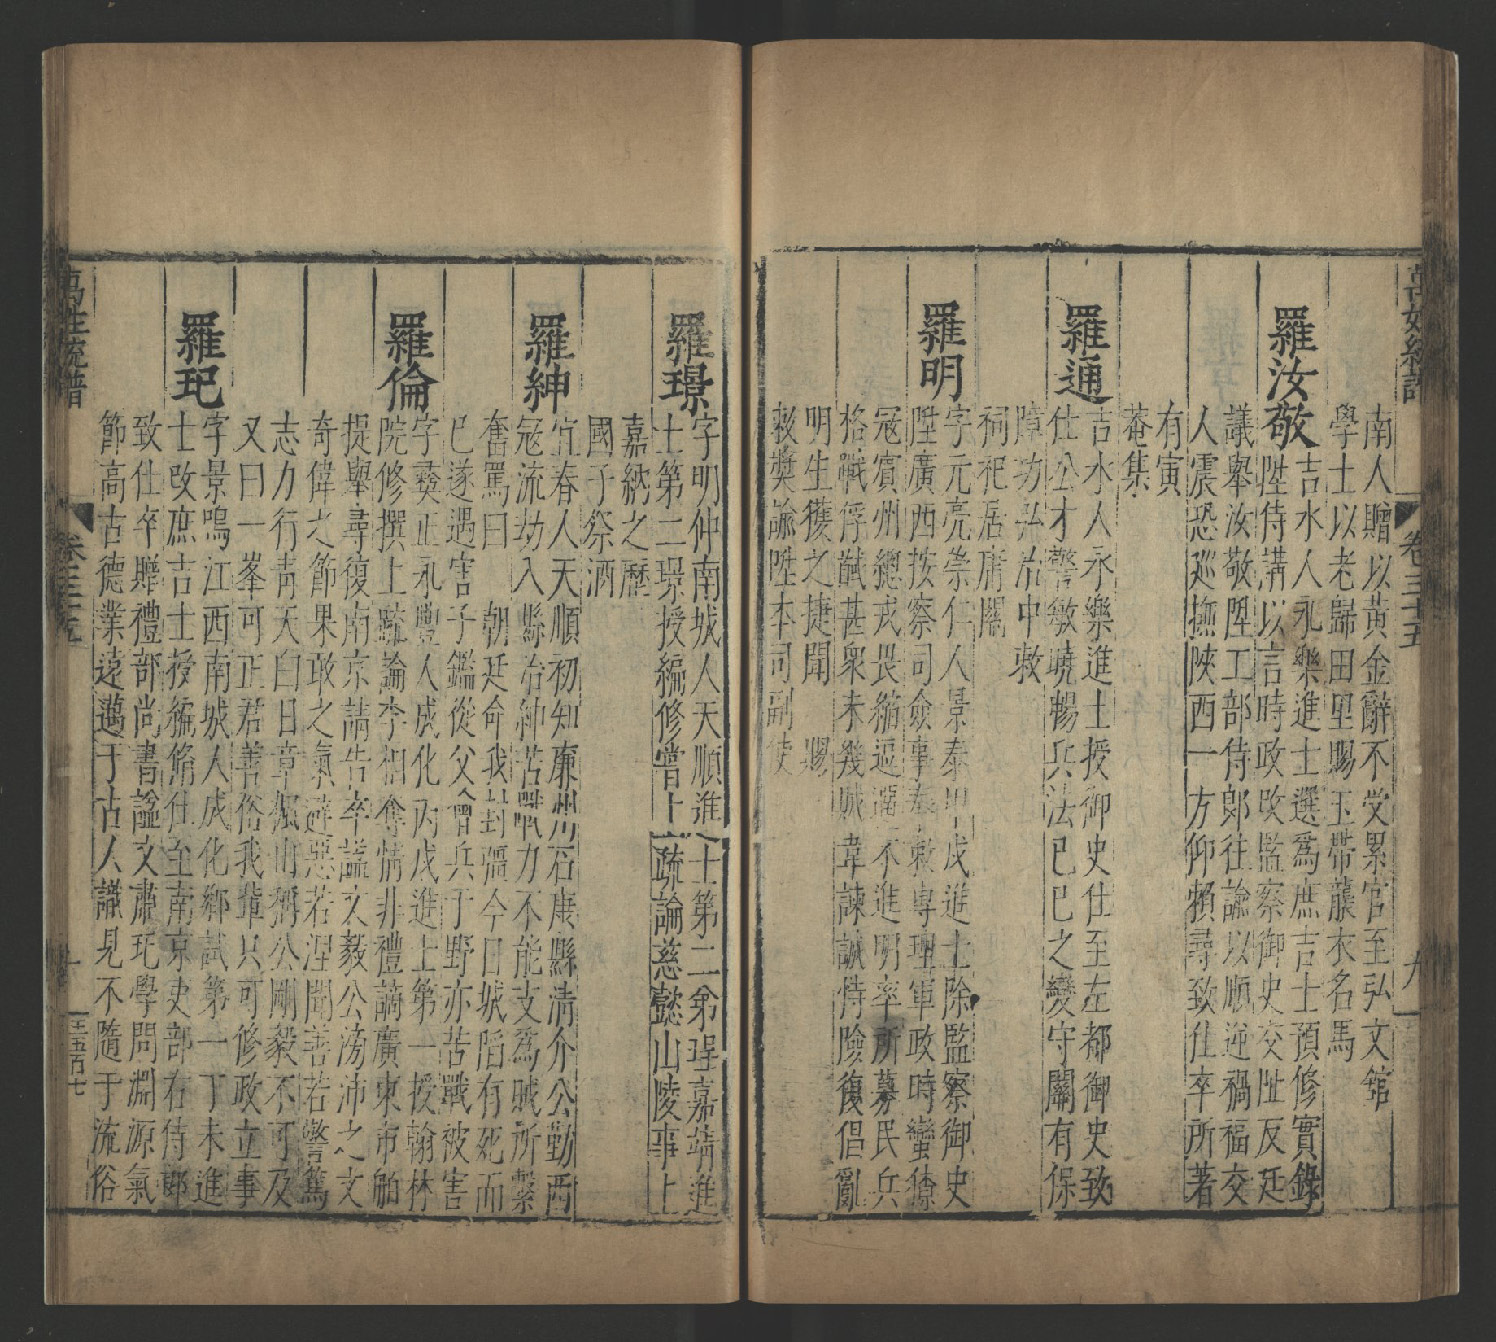 萬姓統譜
卷三十五
九
南人贈以黃金辭不受累官至弘文館
學士以老歸田里賜玉帶蘘衣名馬
羅汝敬
吉水人永樂進士選爲庶吉士預修實錄
陞侍講以言時政改監察御史交阯反廷
議舉汝敬陞工部侍郎往諭以順逆禍福交
人震恐廵撫陜西一方仰賴尋致仕卒所著
有寅
菴集
羅通
吉水人永樂進士授御史仕至左都御史致
仕公才警敏曉暢兵法已巳之變守關有保
障功
祠祀居庸關
羅明
字元亮崇仁人景泰甲戌進士除監察御史
陞廣西按察司僉事奉敕專理軍政時蠻獠
冠賓州總戎畏縮逗遛不進明率所募民兵
格職俘馘甚衆未幾城韋諫誠恃險復倡亂
明生獲之捷聞 賜
敕獎諭陞本司副使
羅璟
字明仲南城人天順進士第二璟授編修嘗上
士第二弟珵嘉靖進
疏論慈懿山陵事上
嘉納之歷
國子祭酒
羅紳
宜春人天順初知廉州石康縣清介公勤西
冠流劫入縣治紳苦戰力不能支爲賊所繫
奮罵曰 朝廷命我封疆今日城陷有死而
已遂遇害子鑑從父禦兵于野亦苦戰被害
羅倫
字彝正永豐人成化丙戌進士第一授翰林
院修撰上疏論李相奪情非禮謫廣東市舶
提舉尋復南京請告卒謚文毅公滂沛之文
奇偉之節果敢之氣避惡若浼聞善若警篤
志力行靑天白日章楓山稱公剛毅不可及
又曰一峯可正君善俗我輩只可修政立事
羅玘
字景鳴江西南城人成化鄉試第一丁未進
士改庶吉士授編脩仕至南京吏部右侍郎
致仕卒贈禮部尚書謚文肅玘學問淵源氣
節高古德業遠邁于古人識見不隨于流俗
萬姓統譜
卷三十五
十